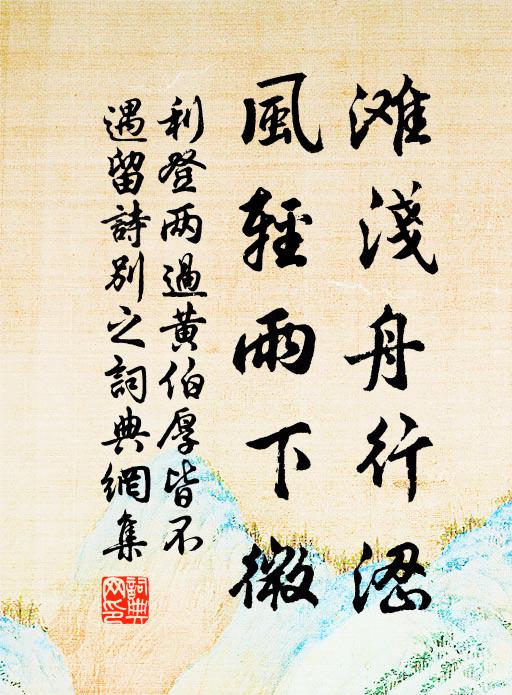 滩淺舟行涩
風輕雨下微
利登两過黄伯厚皆不
遇留詩别之詞典網集
詞典
网印